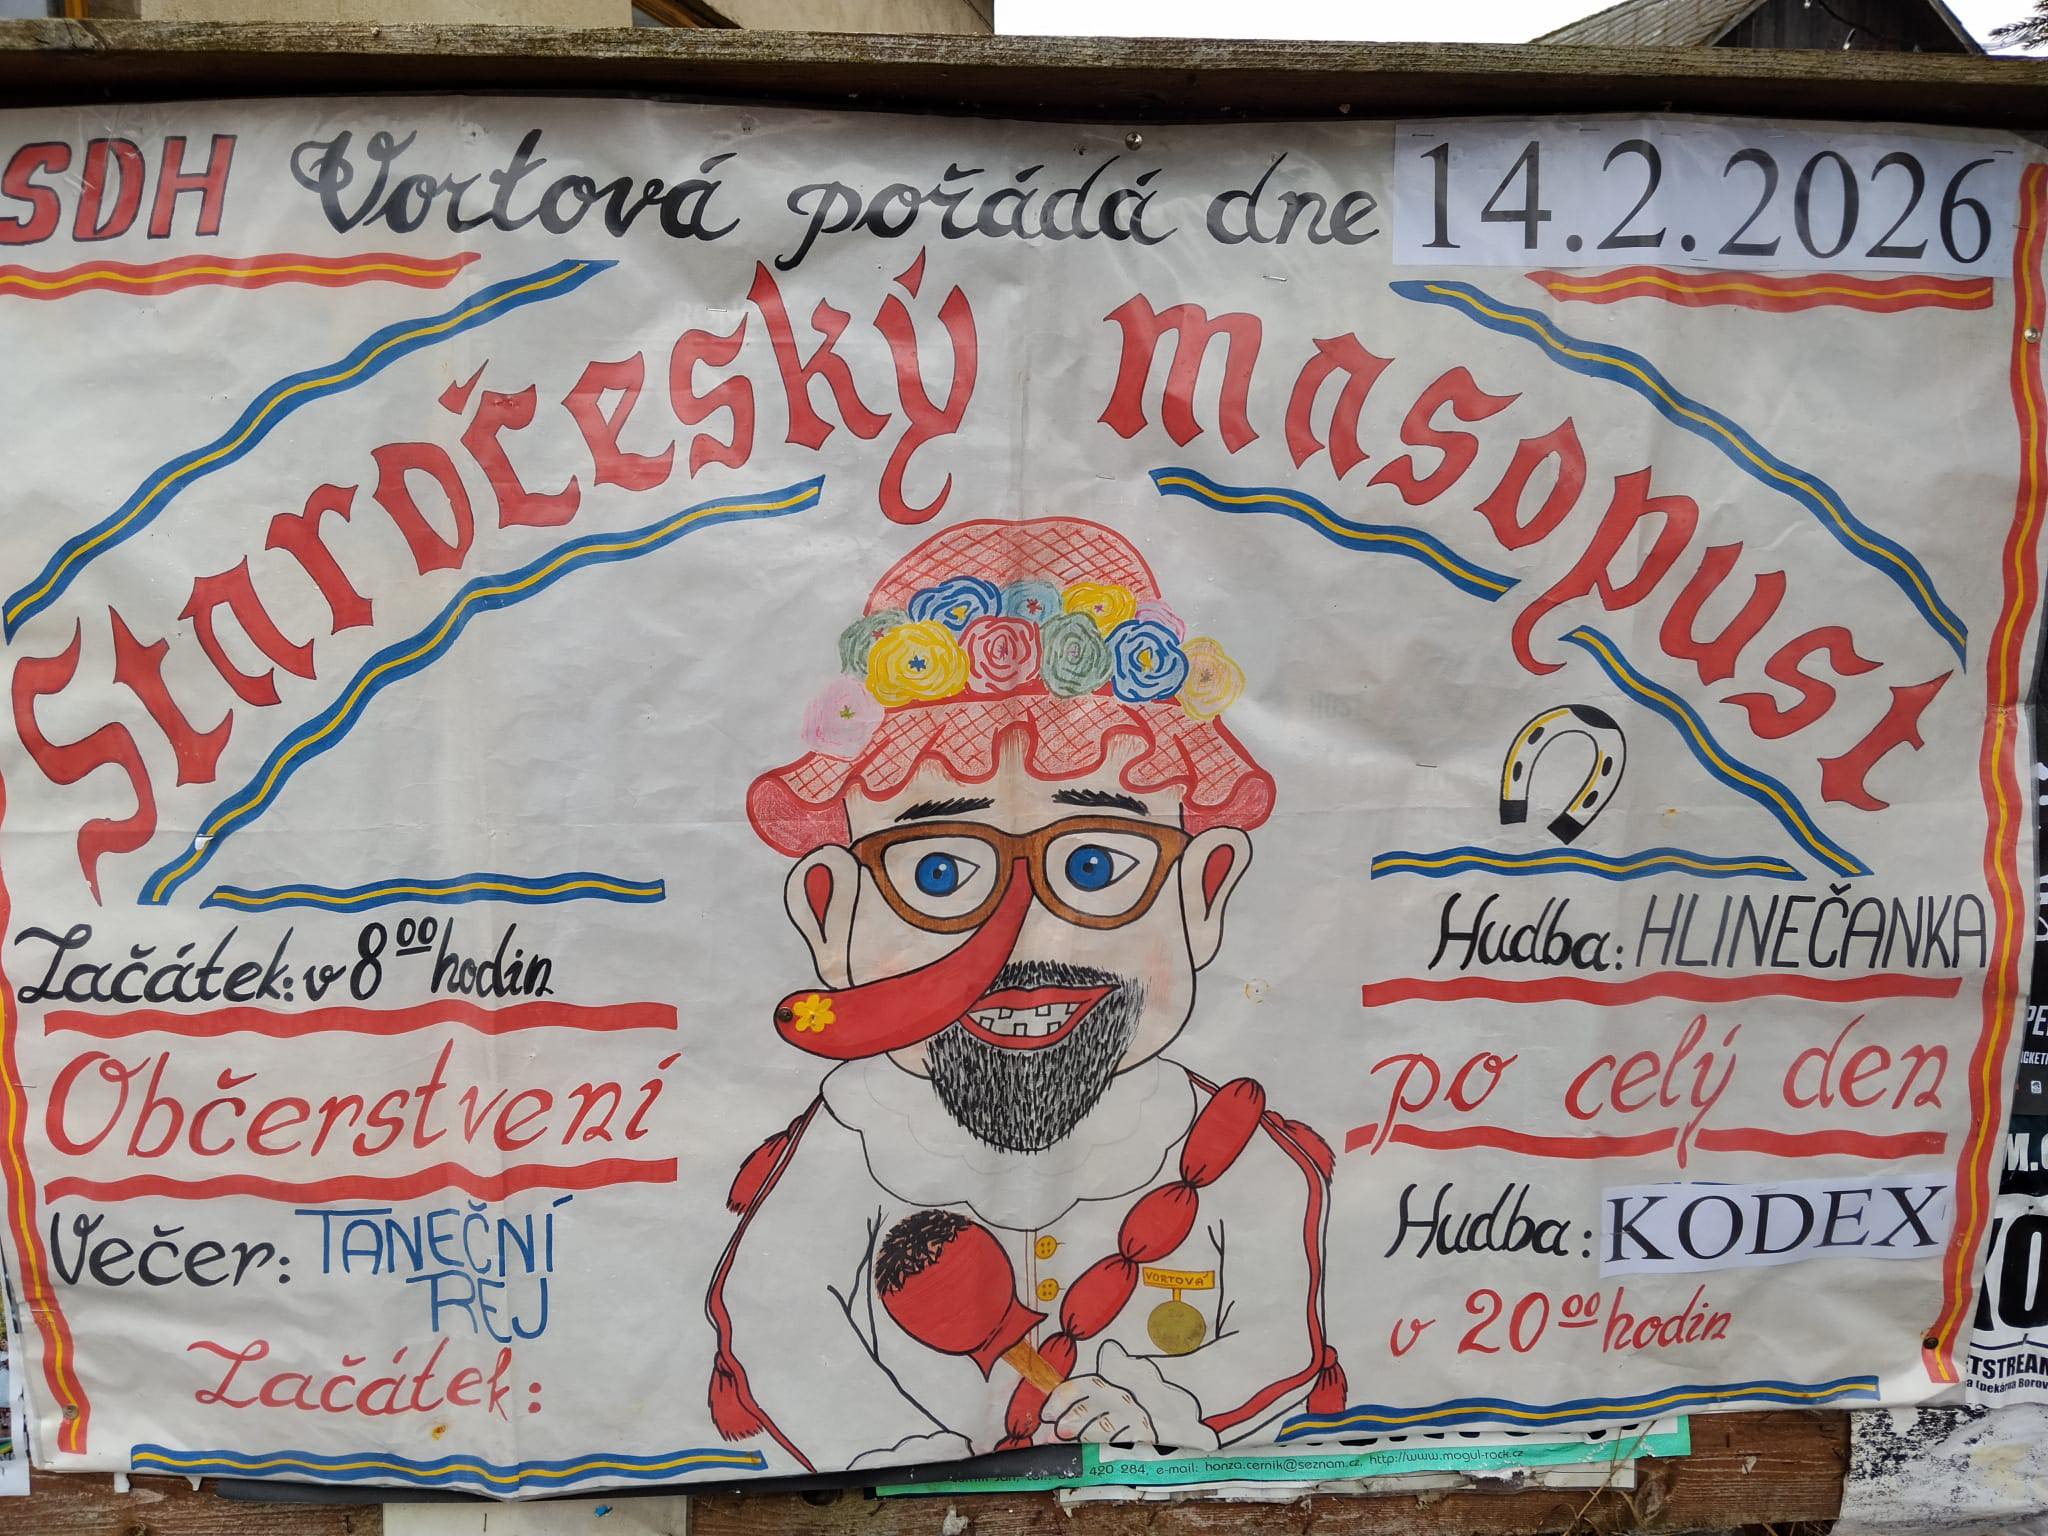 SDH Vortová pořádá dne 14.2.2026
Staročeský masopust
Začátek: v 8⁰⁰ hodin
Hudba: HLINEČANKA
Občerstvení
po celý den
Večer: TANEČNÍ
REJ
Hudba: KODEX
Začátek:
v 20⁰⁰ hodin
VORTOVÁ
420 284, e-mail: honza.cernik@seznam.cz, http://www.mogul-rock.cz